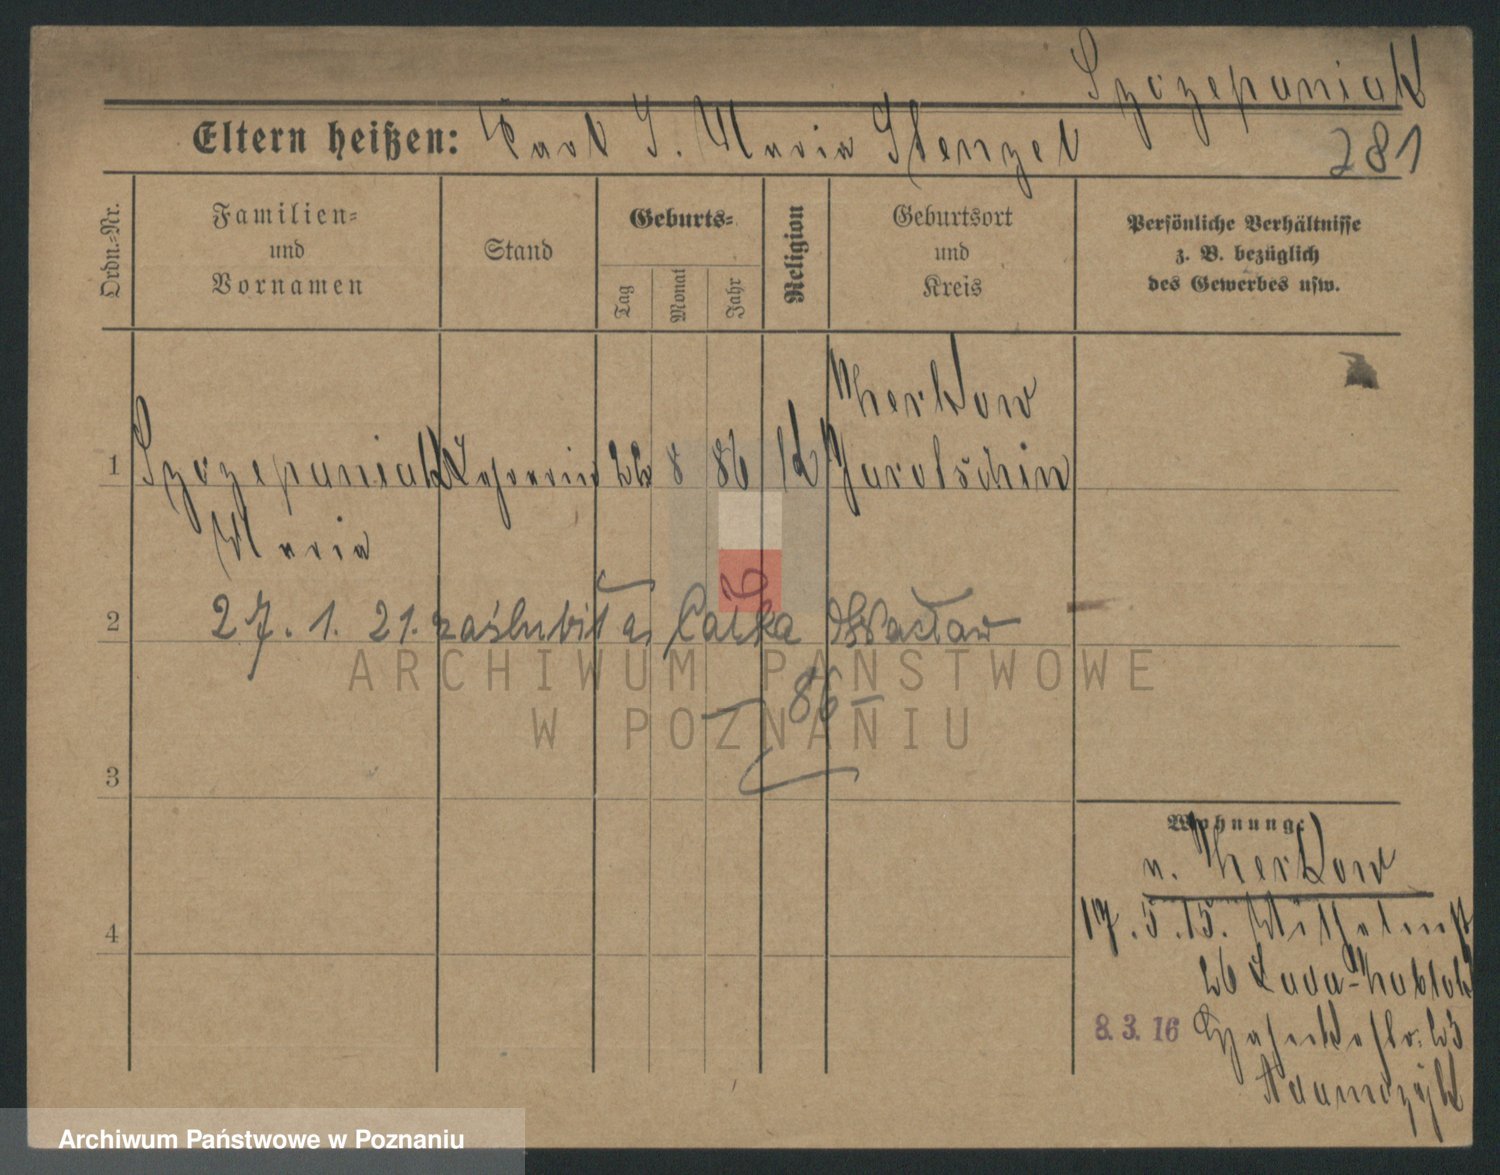 Szczepaniak
281
Eltern heißen: Karl S. Maria Stenzel
Ordn.-Nr.
Familien-
und
Vornamen
Stand
Geburts-
Tag
Monat
Jahr
Religion
Geburtsort
und
Kreis
Persönliche Verhältnisse
z. B. bezüglich
des Gewerbes usw.
Zerkow
1 Szczepaniak 22 8 86 k Jarotschin
Maria
2 27. 1. 21. zaślubiła Całka Wacław
- 86 -
3
4
Wohnung:
v. Zerkow
17. 5. 15. Wilhelmst
26
8. 3. 16 23
Adamczyk
ARCHIWUM PAŃSTWOWE
W POZNANIU
Archiwum Państwowe w Poznaniu